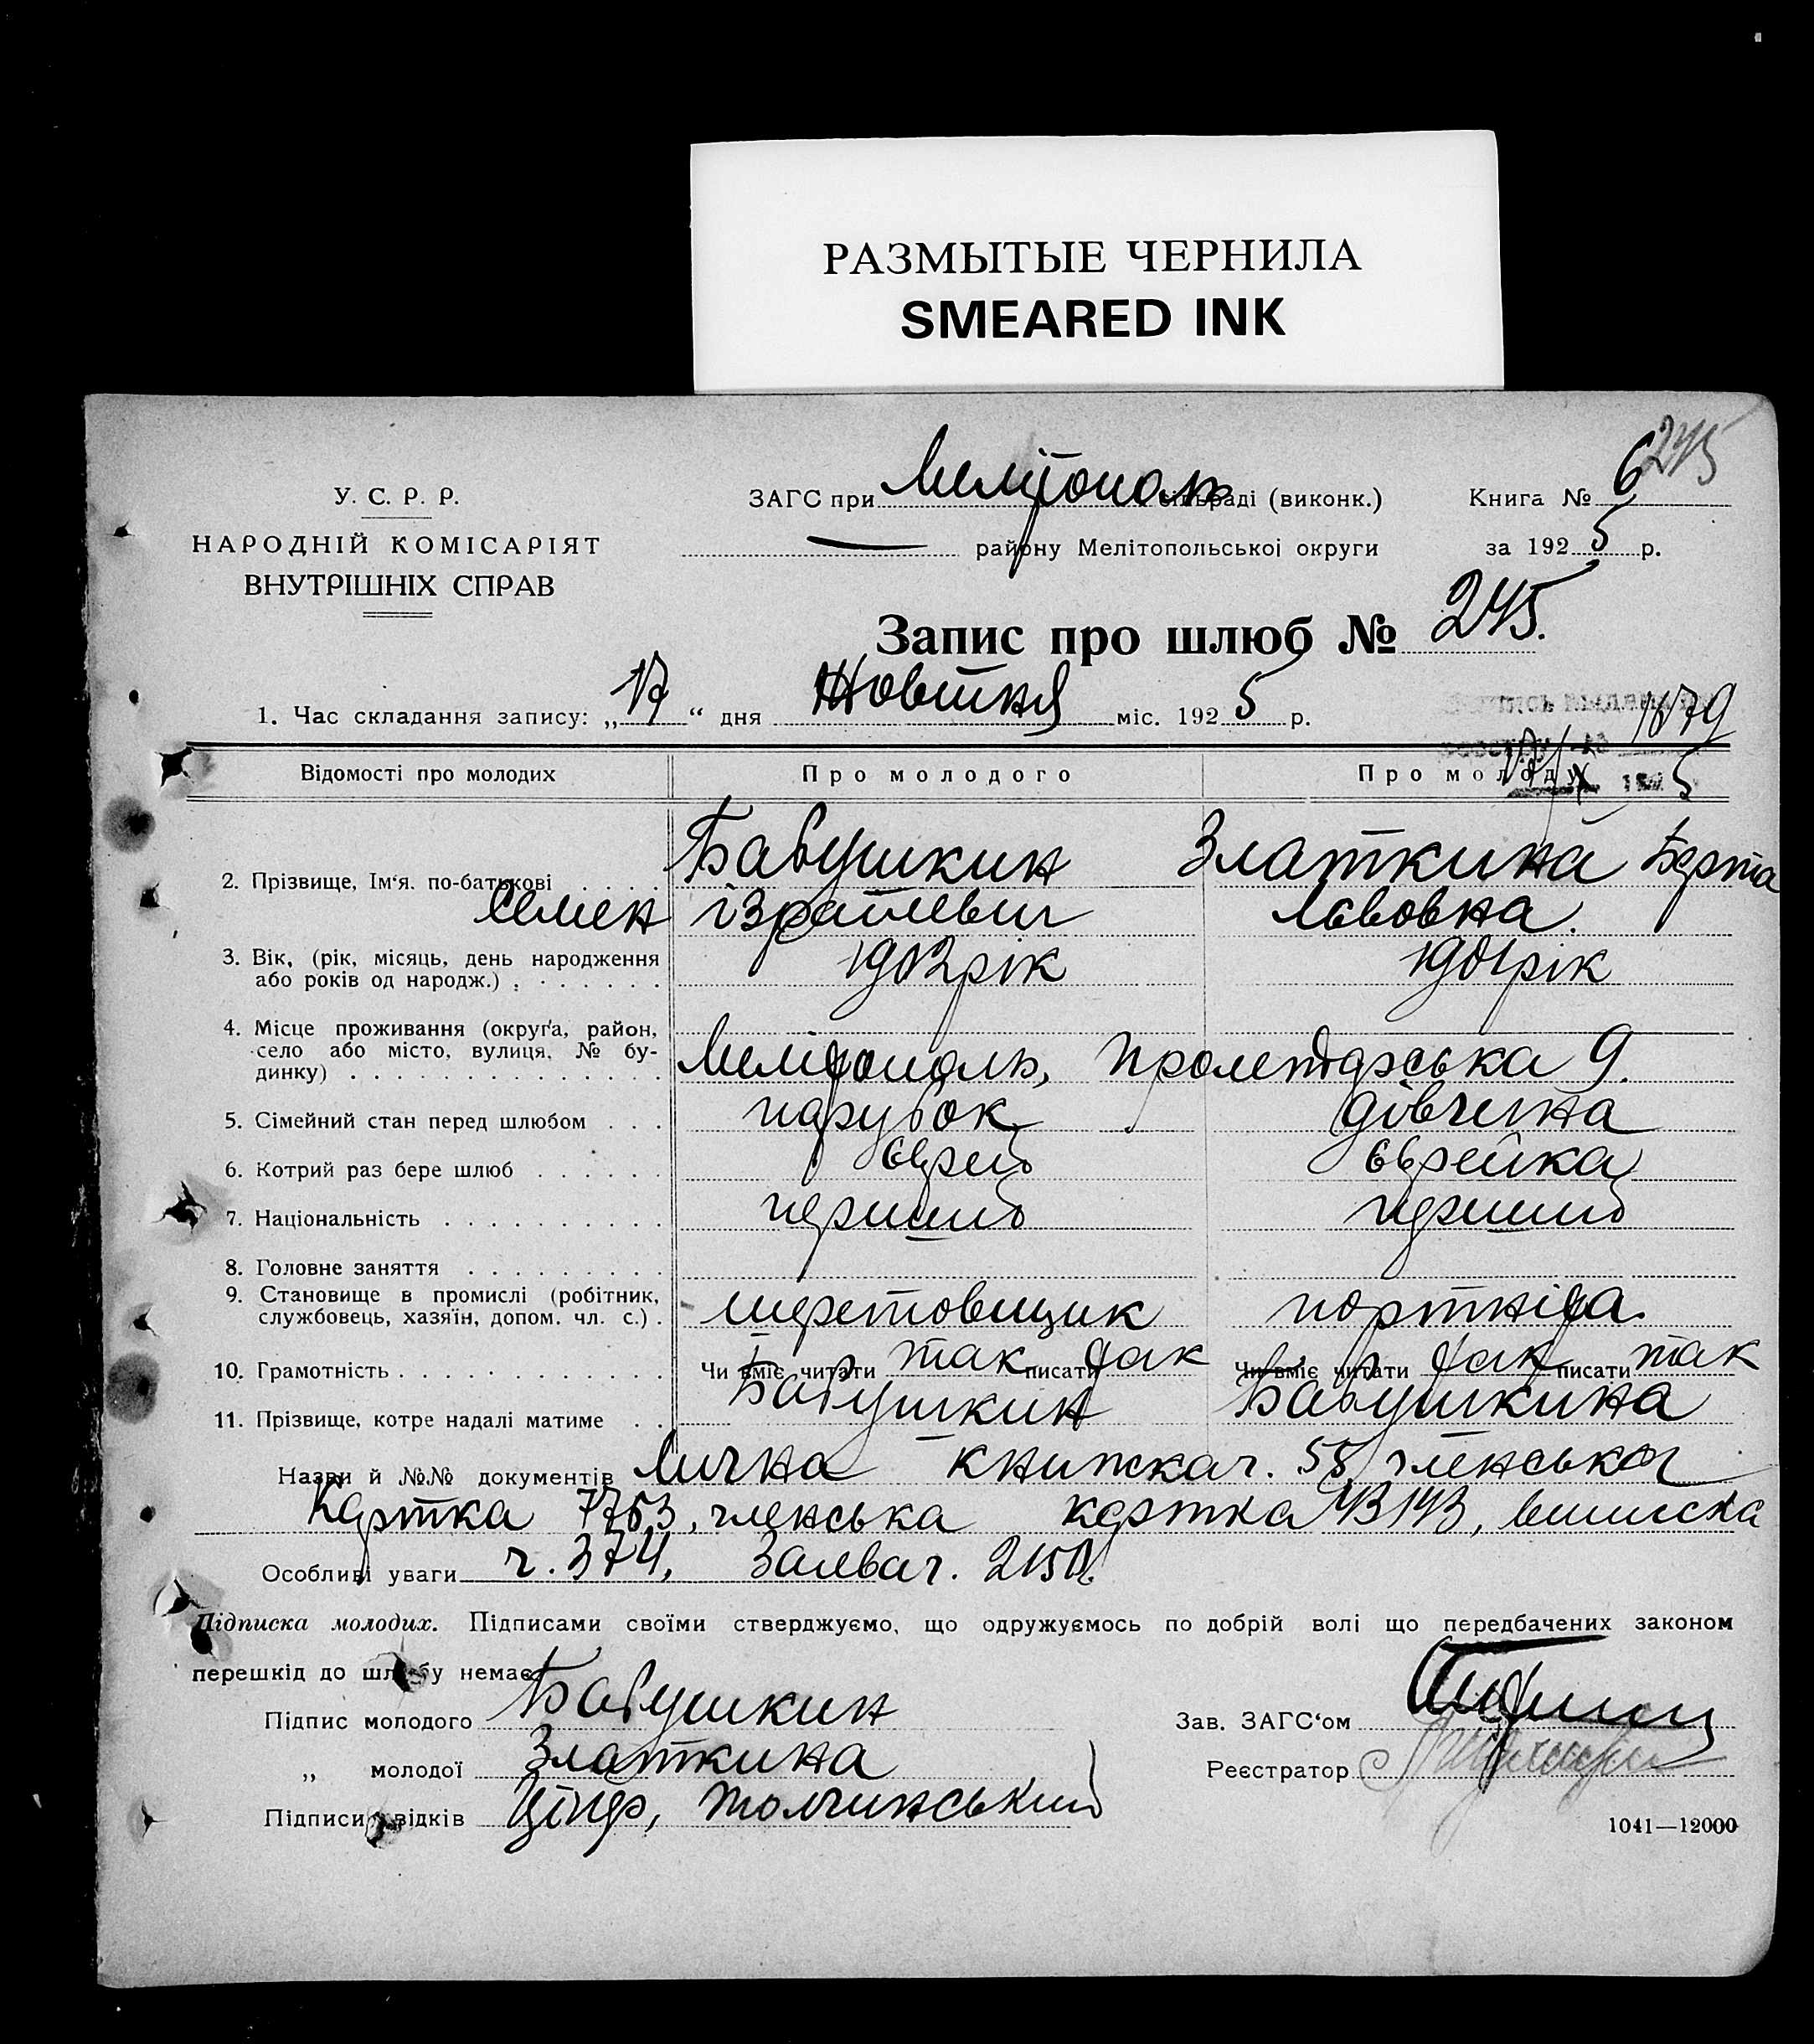 РАЗМЫТЫЕ ЧЕРНИЛА
SMEARED INK
245
У. С. Р. Р.
НАРОДНІЙ КОМІСАРІЯТ
ВНУТРІШНІХ СПРАВ
ЗАГС при Мелітополь сільраді (виконк.)
Книга № 6
— району Мелітопольської округи
за 1925 р.
Запис про шлюб № 245.
1. Час складання запису: „17“ дня Жовтня міс. 1925 р.
1879
Відомості про молодих
Про молодого
Про молоду
2. Прізвище, Ім‘я. по-батькові
Бабушкин
Златкина Берта
Семен ізраїлевич
Львовна.
3. Вік, (рік, місяць, день народження
або років од народж.)
1902 рік
1901 рік
4. Місце проживання (округа, район,
село або місто, вулиця, № бу-
динку)
Мелітополь, Пролетарська 9.
5. Сімейний стан перед шлюбом
парубок
дівчина
6. Котрий раз бере шлюб
Єврей
Єврейка
7. Національність
перший
перший
8. Головне заняття
9. Становище в промислі (робітник,
службовець, хазяїн, допом. чл. с.)
шеретовщик
портніха.
10. Грамотність
Чи вміє читати так писати так
Чи вміє читати так писати так
11. Прізвище, котре надалі матиме
Бабушкин
Бабушкина
Назви й №№ документів Лична книжка ч. 58, членська
картка 7763, членська картка 43143, виписка
Особливі уваги ч. 374, Заява ч.
Підписка молодих. Підписами своїми стверджуємо, що одружуємось по добрій волі що передбачених законом
перешкід до шлюбу немає
Підпис молодого Бабушкин
Зав. ЗАГС‘ом
„ молодої Златкина
Реєстратор
Підписи свідків Ціпер, Толчинський
1041—12000